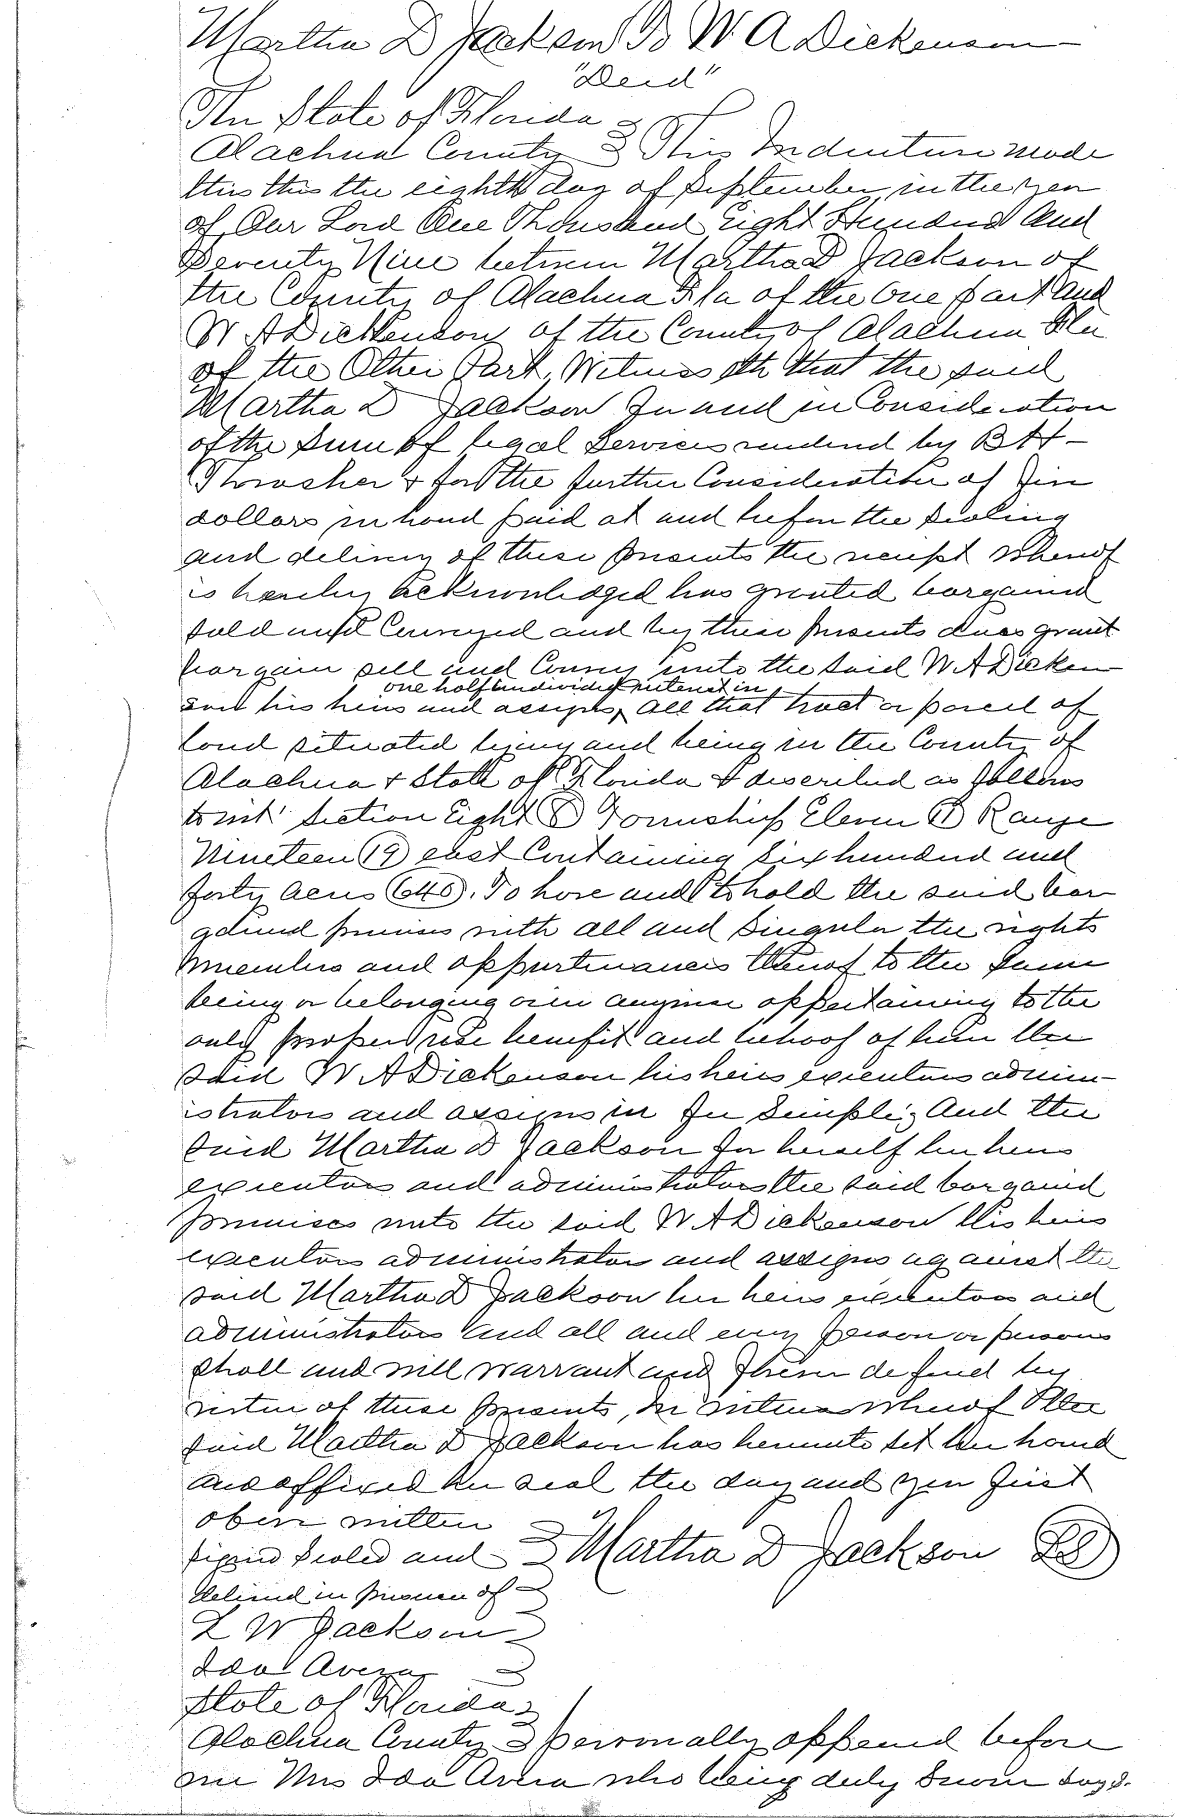 Martha D Jackson To W A Dickenson
"Deed"
The State of Florida
Alachua County } This Indenture made
this this the eighth day of September in the year
of Our Lord One Thousand Eight Hundred And
Seventy Nine between Martha D Jackson of
the County of Alachua Fla of the One part and
W A Dickenson of the County of Alachua Fla
of the Other Part, Witnesseth that the said
Martha D Jackson for and in Consideration
of the Sum of legal Services rendered by B H
Thrasher & for the further Consideration of five
dollars in hand paid at and before the Sealing
and delivery of these presents the receipt whereof
is hereby acknowledged has granted bargained
sold and Conveyed and by these presents does grant
bargain sell and Convey unto the said W A Dicken
one half undivided interest in
son his heirs and assigns, all that tract or parcel of
land situated lying and being in the County of
Alachua & State of Florida & described as follows
to wit Section Eight (8) Township Eleven (11) Range
Nineteen (19) east Containing Six hundred and
forty acres (640). To have and to hold the said bar
gained premises with all and Singular the rights
members and appurtenances thereof to the Same
being or belonging or in anywise appertaining to the
only proper use benefit and behoof of him the
said W A Dickenson his heirs executors admin-
istrators and assigns in fee Simple; And the
Said Martha D Jackson for herself her heirs
executors and administrators the said bargained
premises unto the said W A Dickenson his heirs
executors administrators and assigns against the
said Martha D Jackson her heirs executors and
administrators and all and every person or persons
shall and will warrant and forever defend by
virtue of these presents, In witness whereof the
said Martha D Jackson has hereunto set her hand
and affixed her seal the day and year first
above written
Signed Sealed and } Martha D Jackson (LS)
delivered in presence of
L W Jackson
Ida Avera
State of Florida
Alachua County } personally appeared before
me Mrs Ida Avera who being duly sworn says.